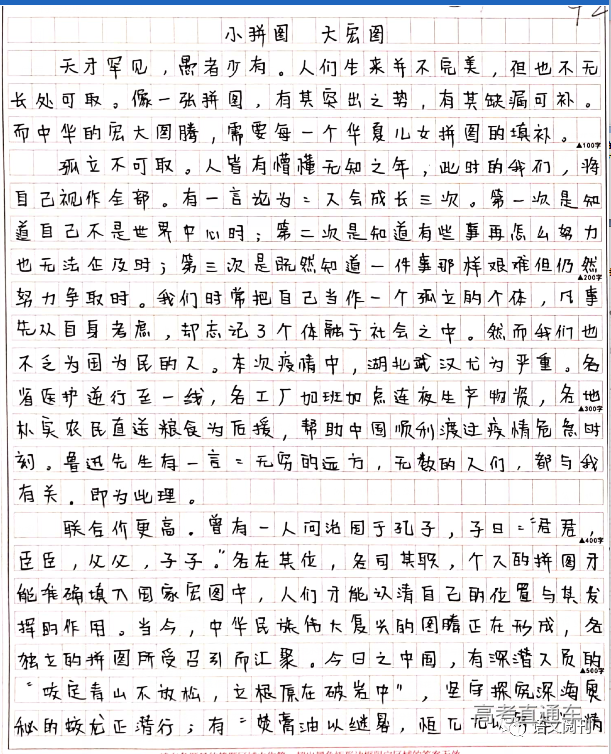 94
小拼图 大宏图
天才罕见，愚者少有。人们生来并不完美，但也不无
长处可取。像一张拼图，有其突出之势，有其缺漏可补。
而中华的宏大图腾，需要每一个华夏儿女拼图的填补。
▲100字
孤立不可取。人皆有懵懂无知之年，此时的我们，将
自己视作全部。有一言论为：人会成长三次。第一次是知
道自己不是世界中心时；第二次是知道有些事再怎么努力
也无法企及时；第三次是既然知道一件事那样艰难但仍然
▲200字
努力争取时。我们时常把自己当作一个孤立的个体，凡事
先从自身考虑，却忘记了个体融于社会之中。然而我们也
不乏为国为民的人。本次疫情中，湖北武汉尤为严重。各
省医护逆行至一线，各工厂加班加点连夜生产物资，各地
▲300字
朴实农民直送粮食为后援，帮助中国顺利渡过疫情危急时
刻。鲁迅先生有一言：无穷的远方，无数的人们，都与我
有关。即为此理。
联合价更高。曾有一人问治国于孔子，子曰：“君君，
▲400字
臣臣，父父，子子。”各在其位，各司其职，个人的拼图才
能准确填入国家宏图中，人们才能认清自己的位置与其发
挥的作用。当今，中华民族伟大复兴的图腾正在形成，各
独立的拼图所受召引而汇聚。今日之中国，有深潜人员的
▲500字
“咬定青山不放松，立根原在破岩中”，坚守探究深海奥
秘的蛟龙正潜行；有“焚膏油以继晷，恒兀兀以
高考直通车
语文周刊